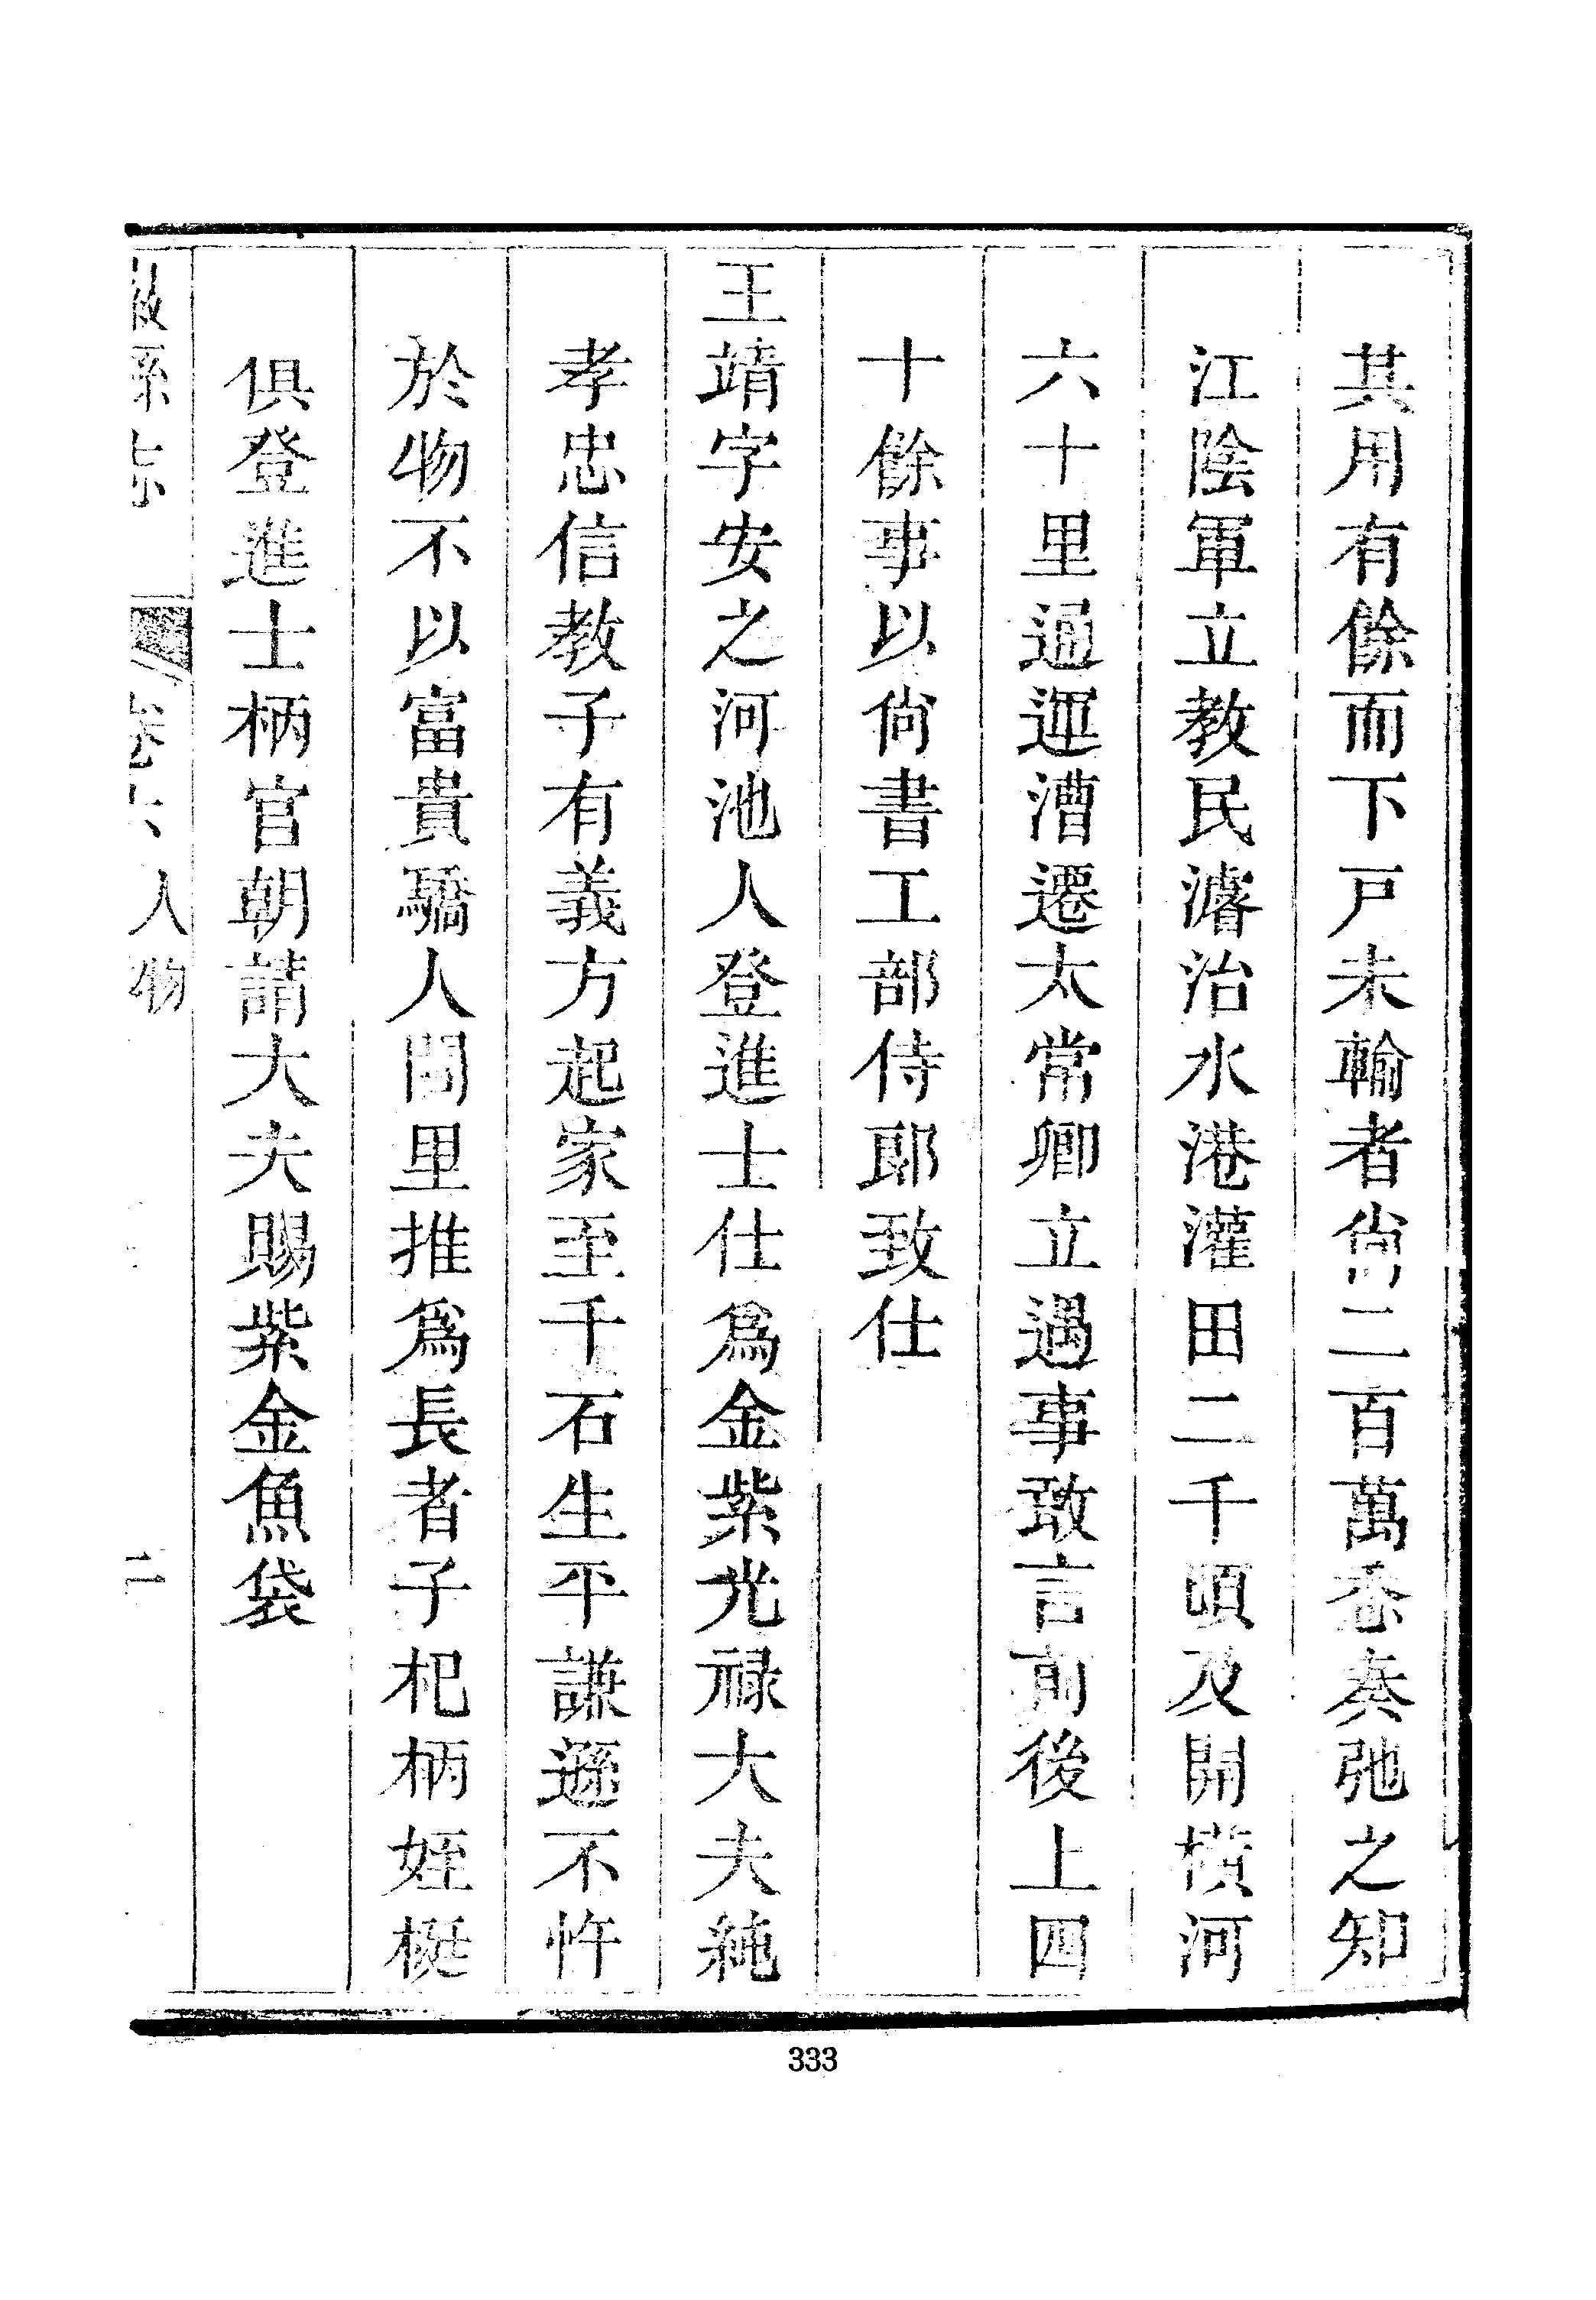 其用有餘而下戸未輸者尙二百萬悉奏弛之知
江陰軍立教民濬治水港灌田二千頃及開橫河
六十里通運漕遷太常卿立遇事敢言前後上四
十餘事以尙書工部侍郞致仕
王靖字安之河池人登進士仕爲金紫光禄大夫純
孝忠信教子有義方起家至千石生平謙遜不忤
於物不以富貴驕人閭里推爲長者子杞柄姪梃
俱登進士柄官朝請大夫賜紫金魚袋
縣志 卷 人物 二
333